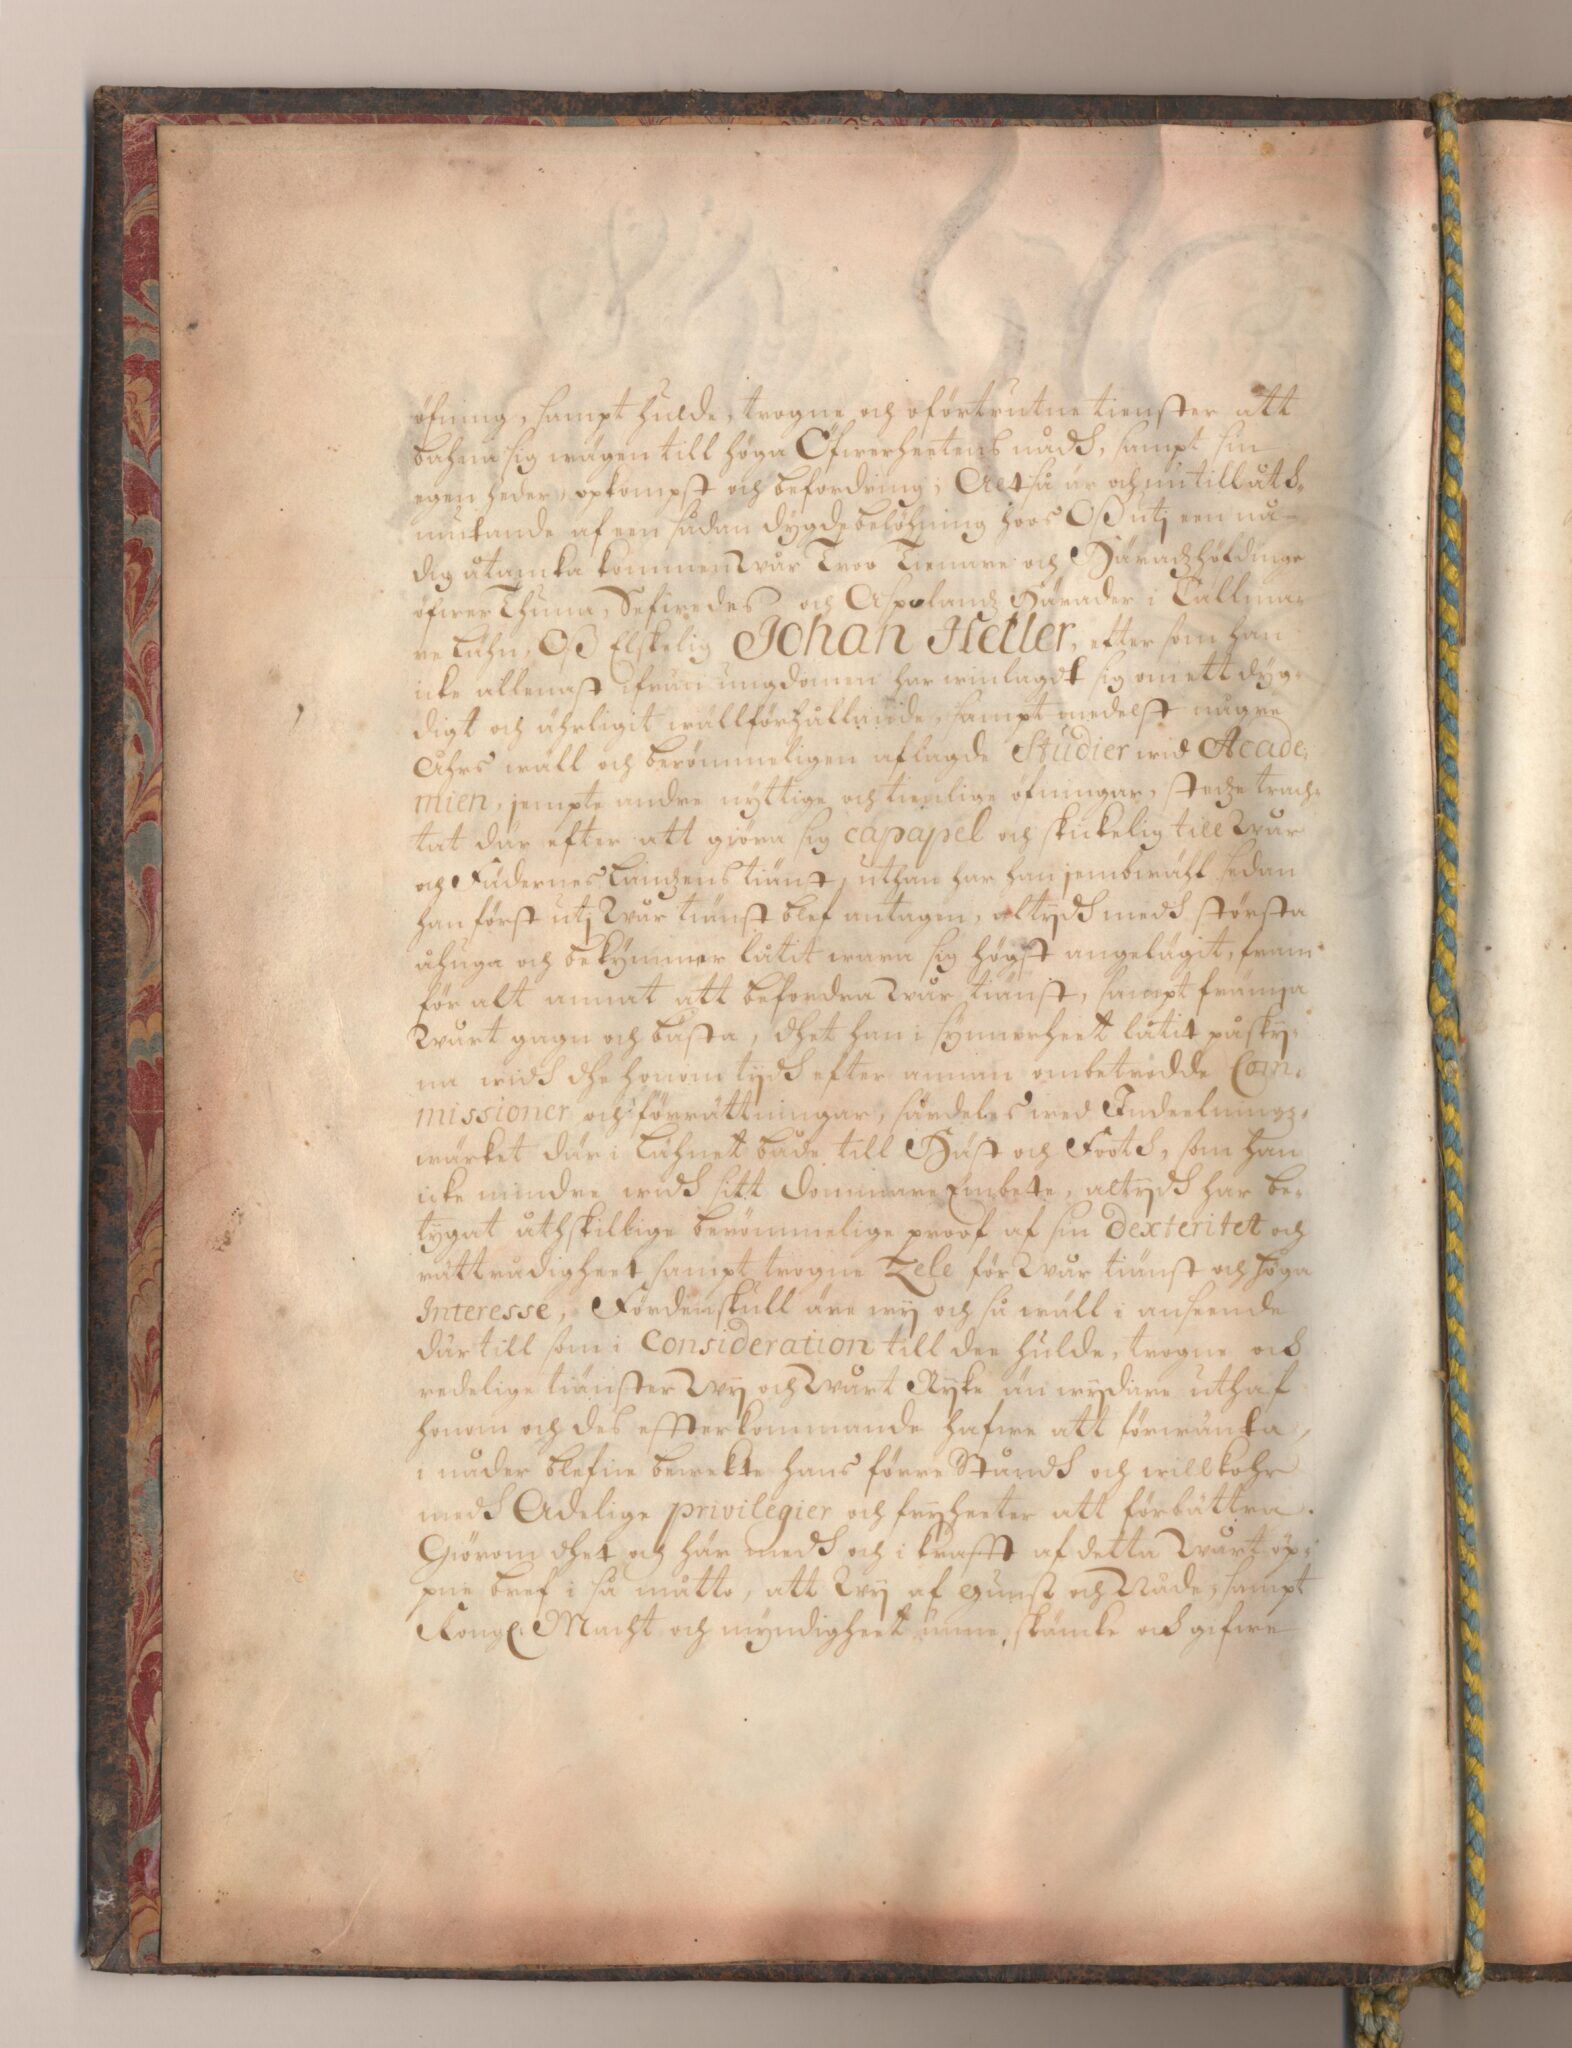 öfning, sampt hulde, trogne och oförtrutne tienster att
bahna sig wägen till höga Öfwerheetens nådh, sampt sin
egen heder, opkompst och befordring; Altså är och nu till åth-
niutande af een sådan dygdebelöhning hoos Oß utj een nå-
dig åtancka kommen Wår Troo Tienare och Häradzhöfdinge
öfwer Thuna, Sefwedes och Aspelandz Härader i Callma-
re Lähn, Oß Elskelig Johan Heller, efter som han
icke allenast ifrån ungdomen har winlagdt sig om ett dyg-
digt och ährligit wällförhållande, sampt medelst någre
Åhrs wäll och berömmeligen aflagde Studier wid Acade-
mien, jempte andre nyttige och tienlige öfningar, stedze trach-
tat där efter att giöra sig capapel och skickelig till Wår
och Fädernes Landzens tiänst, uthan har han jembwähl sedan
han först utj Wår tiänst blef antagen, altydh medh största
åhuga och bekymmer låtit wara sig högst angelägit, fram
för alt annat att befordra Wår tiänst, sampt främja
Wårt gagn och bästa, dhet han i synnerheet låtit påsky-
na widh dhe honom tydh efter annan ombetrodde Com-
missioner och förrättningar, särdeles wed Indeelningz-
wärket där i Lähnet både till Häst och Footh, som han
icke mindre widh sitt Dommare Embete, altydh har be-
tygat åthskillige berömmelige proof af sin dexteritet och
rättrådigheet sampt trogne Zele för Wår tiänst och höga
Interesse, Fördenskull äre wij och så wäll i anseende
där till som i Consideration till dee hulde, trogne och
redelige tiänster Wij och Wårt Ryke än wydare uthaf
honom och des effterkommande hafwe att förwänta,
i nåder blefne bewekte hans förre Ståndh och willkohr
medh Adelige privilegier och fryheeter att förbättra.
Giörom dhet och här medh och i krafft af detta Wårt öp-
pne bref i så måtto, att Wij af gunst och Nåde, sampt
Kongl. Macht och myndigheet unne, skäncke och gifwe